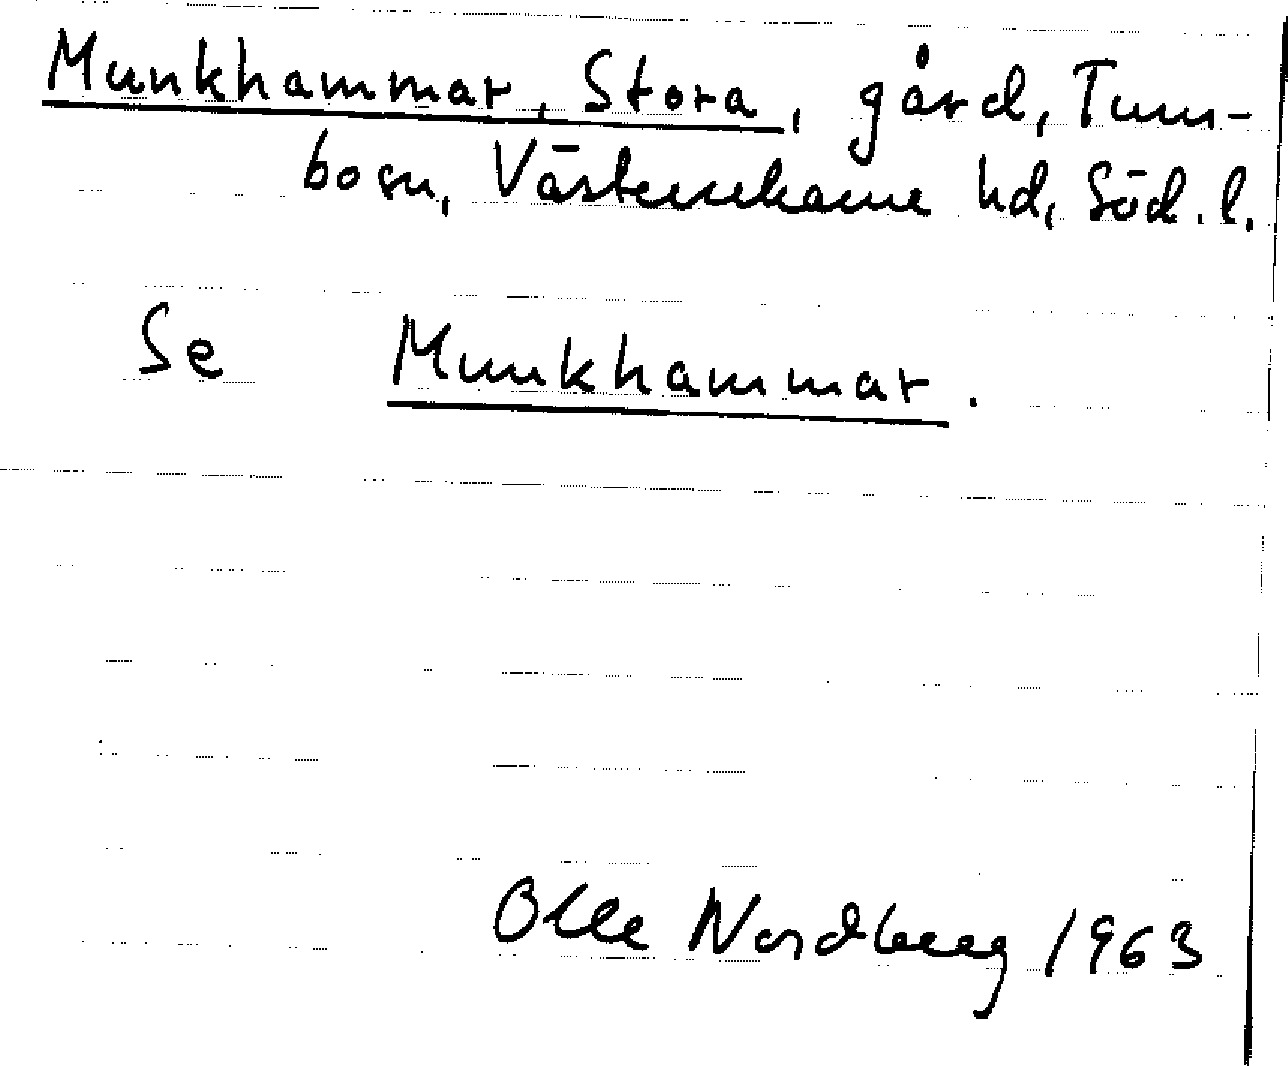 Munkhammar, Stora, gård, Tum-
bo sn, Västerrekarne hd, Söd. l.
Se Munkhammar.
Olle Nordberg 1963